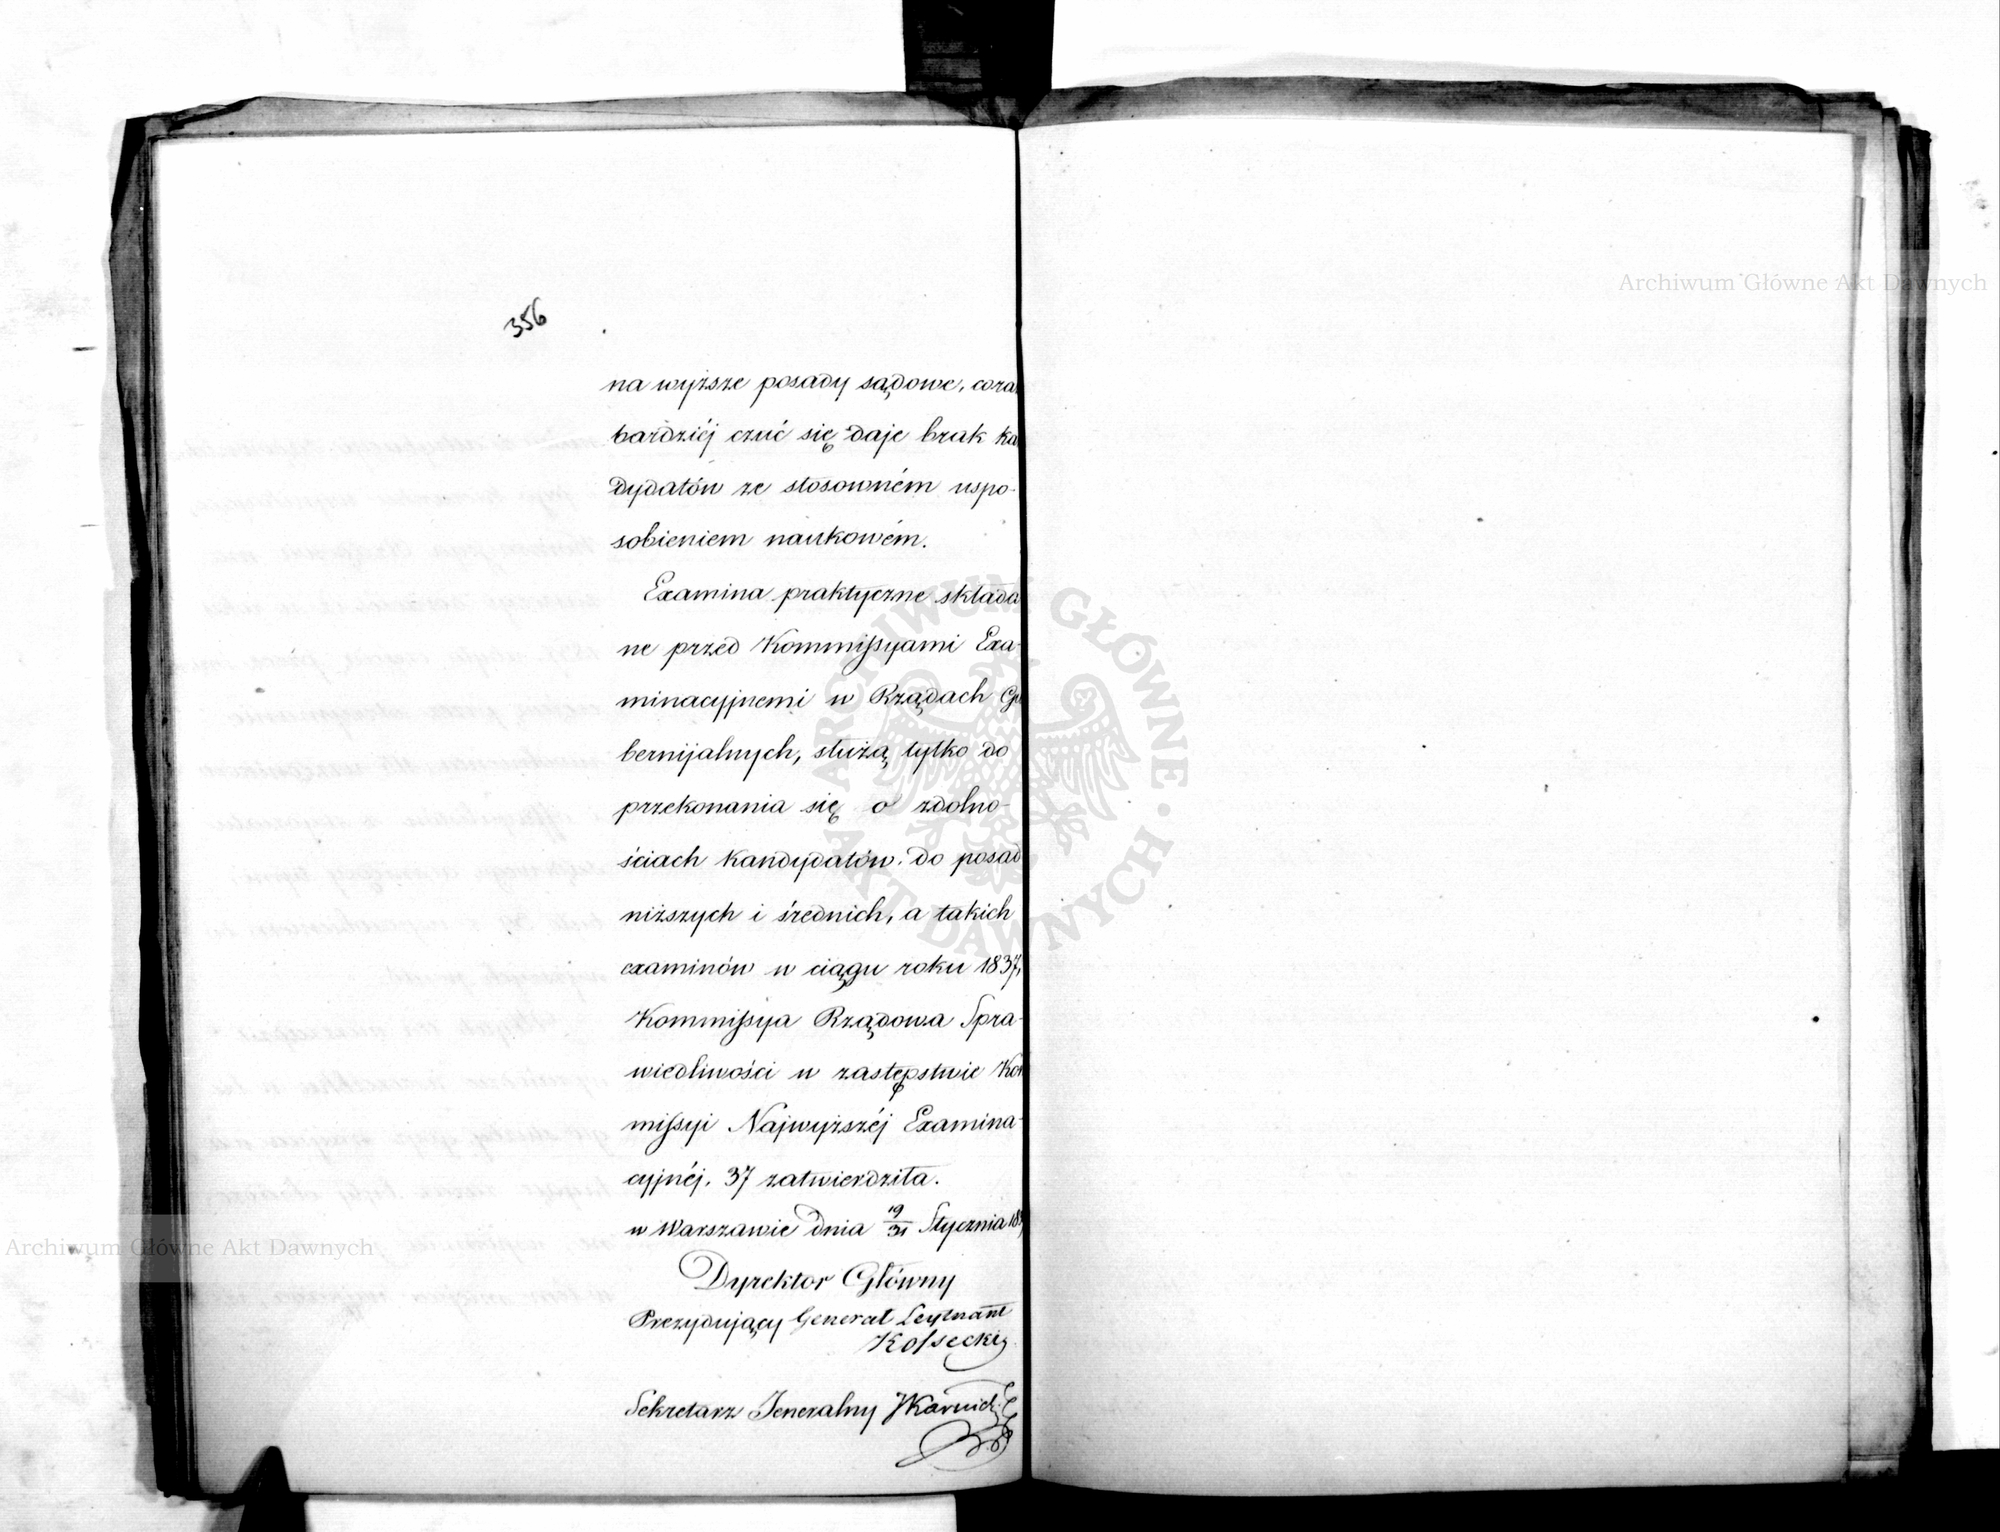 356
na wyższe posady sądowe, cora
bardziéj czuć się daje brak ka
dydatów ze stosowném uspo-
sobieniem naukowém.
Examina praktyczne składa
ne przed Kommissyami Exa-
minacyjnemi w Rządach Gu
bernijalnych, służą tylko do
przekonania się o zdolno-
ściach kandydatów do posad
niższych i średnich, a takich
examinów w ciągu roku 1837,
Kommissya Rządowa Spra-
wiedliwości w zastępstwie Kom
missyi Najwyższéj Examina-
cyjnéj, 37 zatwierdziła.
w Warszawie dnia 19/31 Stycznia 183
Dyrektor Główny
Prezydujący Generał Leytnant
Kossecki
Sekretarz Jeneralny JKarnicki
Archiwum Główne Akt Dawnych
Archiwum Główne Akt Dawnych
ARCHIWUM GŁÓWNE AKT DAWNYCH